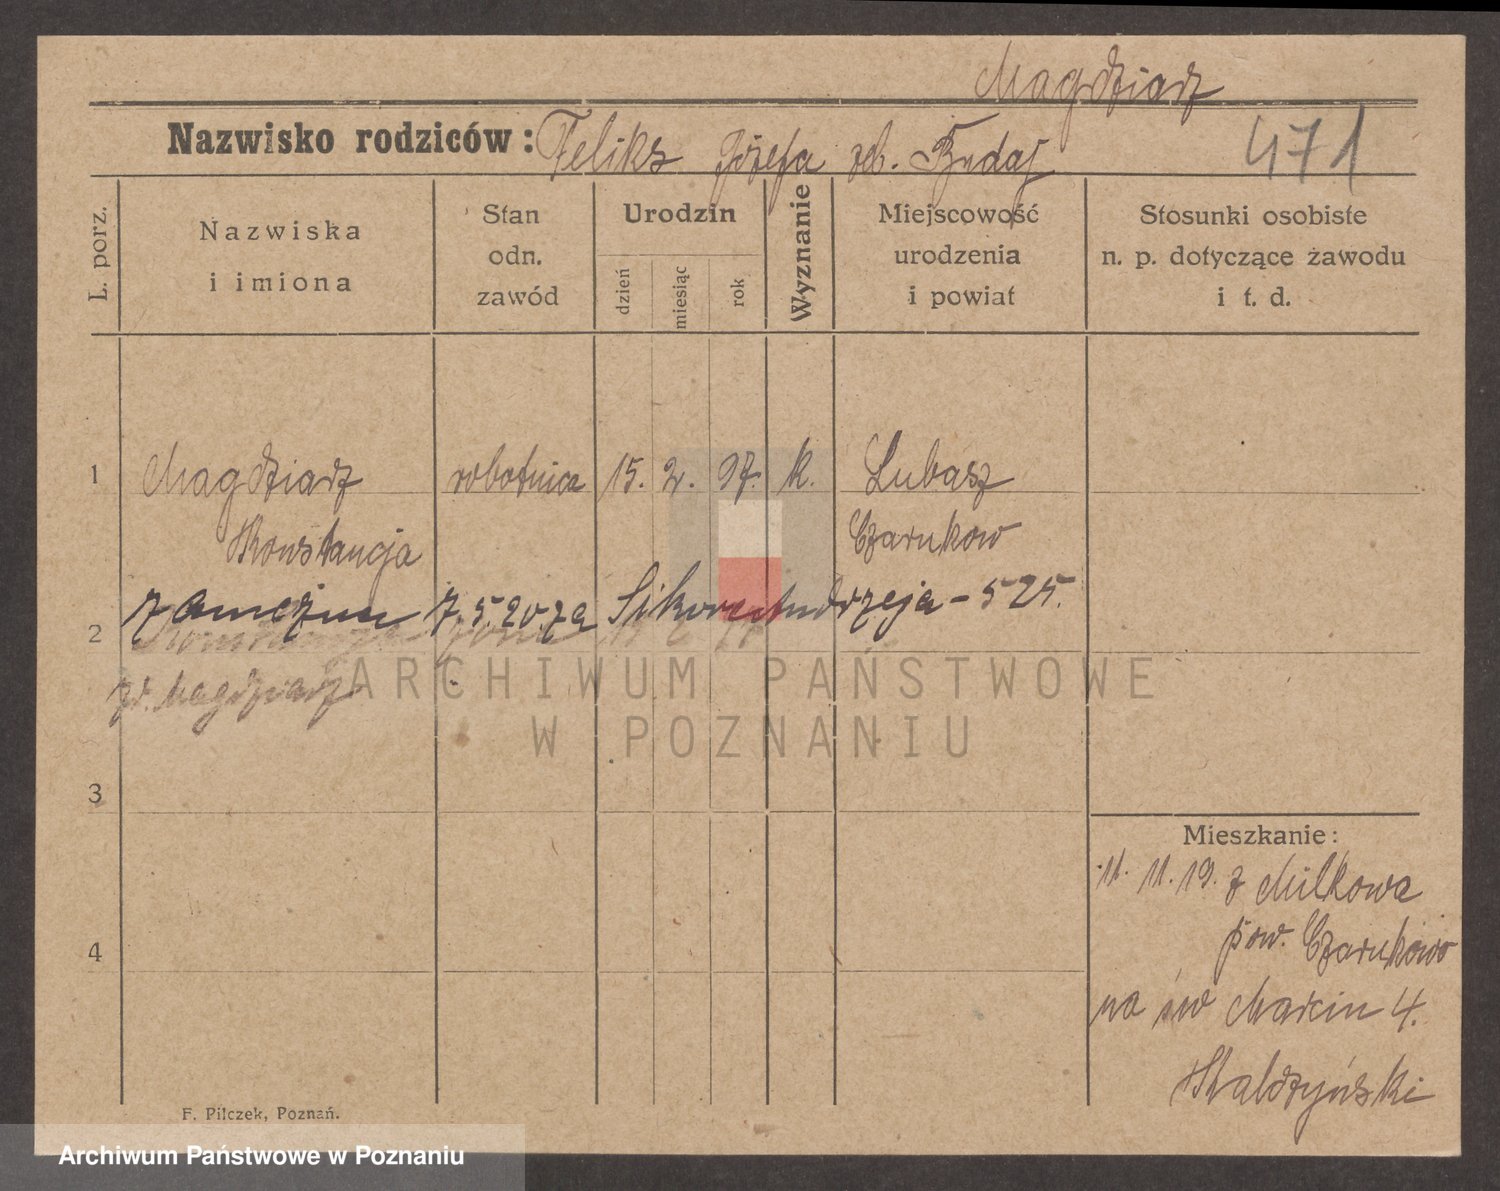 Magdziarz
Nazwisko rodziców: Feliks Józefa zd. Budaj
471
L. porz.
Nazwiska
i imiona
Stan
odn.
zawód
Urodzin
dzień
miesiąc
rok
Wyznanie
Miejscowość
urodzenia
i powiat
Stosunki osobiste
n. p. dotyczące zawodu
i t. d.
1 Magdziarz robotnica 15. 2. 97. k. Lubasz
Konstancja Czarnkow
zamężna 7.5.20. za Sikora Andrzeja - 525.
2
zd. Magdziarz
3
4
Mieszkanie:
11. 11. 19. z Milkowa
pow. Czarnkowo
na św Marcin 4.
F. Pilczek, Poznań.
ARCHIWUM PAŃSTWOWE
W POZNANIU
Archiwum Państwowe w Poznaniu